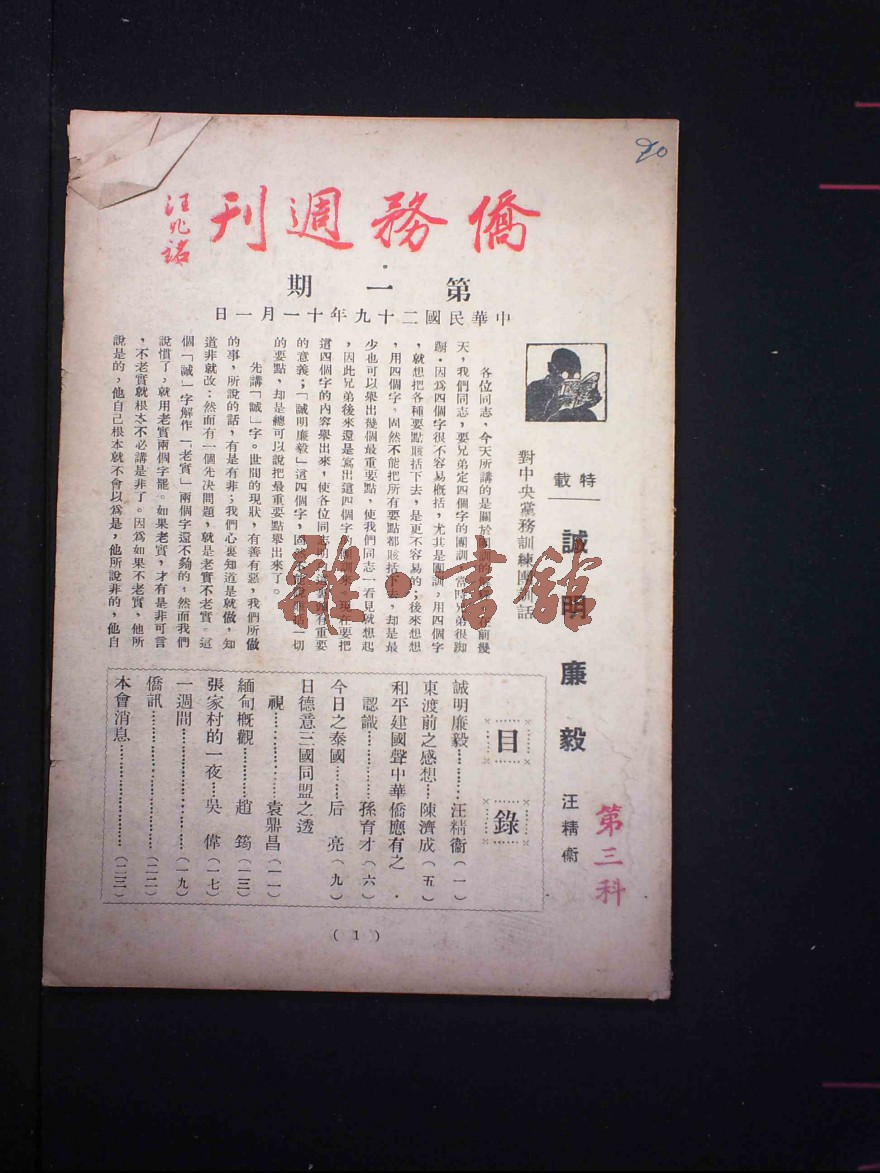 20
僑務週刊
汪兆銘
第一期
中華民國二十九年十一月一日
特載
誠明廉毅
汪精衞
對中央黨務訓練團訓話
各位同志,今天所講的是關於團訓的
在前幾
天,我們同志,要兄弟定四個字的團訓,當時兄弟很踟
躕。因爲四個字很不容易概括,尤其是團訓,用四個字
,就想把各種要點賅括下去,是更不容易的;後來想想
,用四個字,固然不能把所有要點都賅括下去,却是最
少也可以舉出幾個最重要點,使我們同志一看見就想起
,因此兄弟後來還是寫出這四個字的團訓來,現在要把
這四個字的內容舉出來,使各位同志明
重要
的意義;「誠明廉毅」這四個字,固然不
括一切
的要點,却是總可以說把最重要點舉出來了。
先講「誠」字。世間的現狀,有善有惡,我們所做
的事,所說的話,有是有非;我們心裏知道是就做,知
道非就改;然而有一個先决問題,就是老實不老實。這
個「誠」字解作「老實」兩個字還不夠的,然而我們
說慣了,就用老實兩個字罷。如果老實,才有是非可言
,不老實就根本不必講是非了。因爲如果不老實,他所
說是的,他自己根本就不會以爲是,他所說非的,他自
目錄
誠明廉毅…………汪精衞(一)
東渡前之感想…陳濟成(五)
和平建國聲中華僑應有之
認識…………孫育才(六)
今日之泰國……后亮(九)
日德意三國同盟之透
視…………袁鼎昌(一一)
緬甸概觀…………趙筠(一三)
張家村的一夜…吳偉(一七)
一週間…………………(一九)
僑訊……………………(二二)
本會消息………………(二三)
第三科
(1)
雜·書館